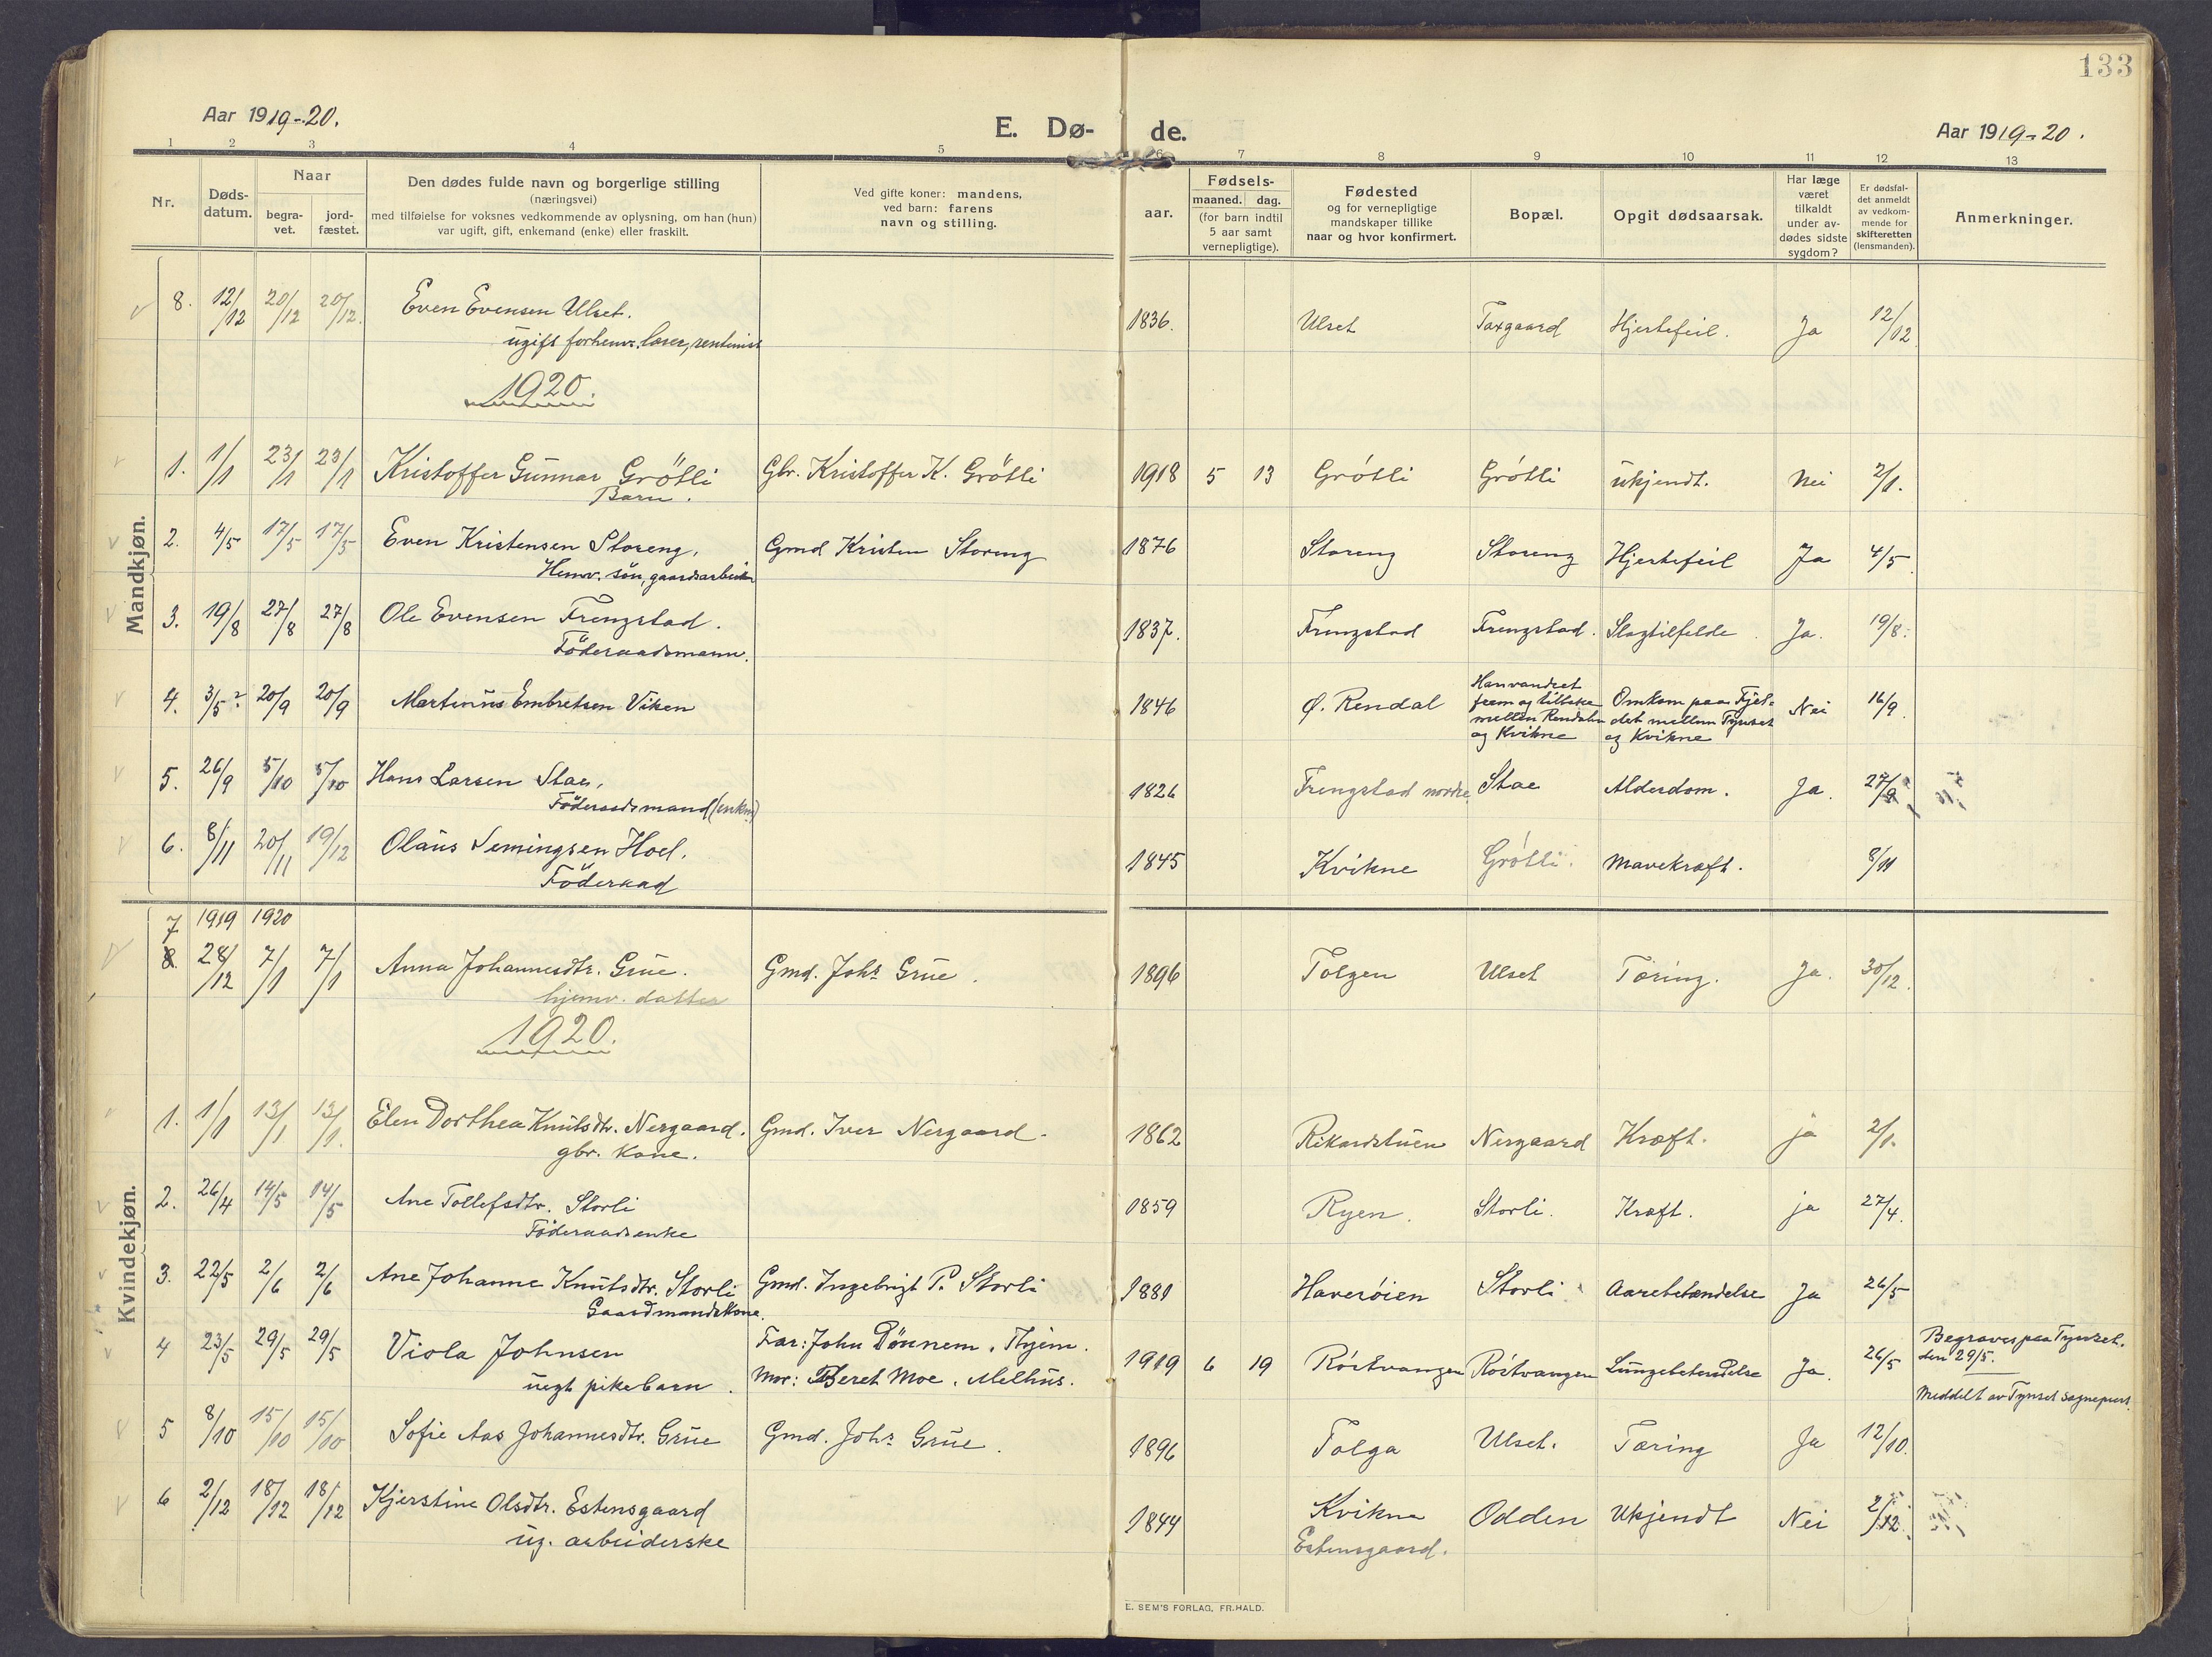 133
Aar 1919-20.
E. Dø- de.
Aar 1919-20.
1 2 3 4 5 6 7 8 9 10 11 12 13
Nr.
Døds-
datum.
Naar
begra-
vet.
jord-
fæstet.
Den dødes fulde navn og borgerlige stilling
(næringsvei)
med tilføielse for voksnes vedkommende av oplysning, om han (hun)
var ugift, gift, enkemand (enke) eller fraskilt.
Ved gifte koner: mandens,
ved barn: farens
navn og stilling.
aar.
Fødsels-
maaned. dag.
(for barn indtil
5 aar samt
vernepligtige).
Fødested
og for vernepligtige
mandskaper tillike
naar og hvor konfirmert.
Bopæl.
Opgit dødsaarsak.
Har læge
været
tilkaldt
under av-
dødes sidste
sygdom?
Er dødsfal-
det anmeldt
av vedkom-
mende for
skifteretten
(lensmanden).
Anmerkninger.
Mandkjøn.
8. 12/12 20/12 20/12. Even Evensen Ulset. 1836. Ulset Taxgaard Hjertefeil. Ja 12/12
ugift forhenv. læser, rentenist
1920.
1. 1/1 23/1 23/1 Kristoffer Gunnar Grötli Gbr. Kristoffer K. Grötli 1918 5 13 Grótli Grótli ukjendt. Nei 2/1.
Barn.
2. 4/5 17/5 17/5 Even Kristensen Storeng. Gmd Kristen Storeng 1876 Storeng Storeng Hjertefeil Ja 4/5
Hemv. sön, gaardsarbeider
3. 19/8 27/8 27/8 Ole Evensen Frengstad. 1837. Frengstad Frengstad. Slagtilfelde Ja. 19/8.
Föderaadsmann.
4. 3/5? 20/9 20/9 Martinus Embretsen Viken 1846 Ø. Rendal
Han vandret
frem og tilbake
mellem Rendalen
og Kvikne
Omkom paa Fjel-
det mellem Tynset
og Kvikne
Nei 16/9.
5. 26/9 5/10 5/10 Hans Larsen Stae, 1826 Frengstad nordre Stae Alderdom. Ja. 27/9
Föderaadsmand (enkm)
6. 8/11 20/11 19/12 Olaus Semingsen Hoel. 1845 Kvikne Grótli. Mavekræft. 8/11
Föderaad
Kvindekjøn.
7 1919 1920
8. 28/12 7/1 7/1 Anna Johannesdtr. Grue. Gmd. Johs Grue. 1896 Tolgen Ulset Tæring. Ja. 30/12.
hjemv. datter
1920.
1. 1/1 13/1 13/1. Elen Dorthea Knutsdtr. Nergaard. Gmd. Iver Nergaard. 1862 Rikardstuen Nergaard Kræft. ja 2/1.
gbr. Kone.
2. 26/4 14/5 14/5 Ane Tollefsdtr. Storli 1859 Ryen. Storli. Kræft. ja 27/4.
Föderaadsenke
3. 22/5 2/6 2/6 Ane Johanne Knutsdtr. Storli Gmd. Ingebrigt P. Storli 1881 Haverøien Storli Aarebetændelse Ja 26/5
Gaardmandskone.
4 23/5 29/5 29/5 Viola Johnsen Far: John Dönnem, Thjem. 1919 6 19 Róstvangen Róstvangen Lungebetendelse Ja. 26/5
uegt pikebarn. Mor: Beret Moe. Melhus.
Begraves paa Tynset.
den 29/5.
Meddelt av Tynset sognepræst.
5 8/10 15/10 15/10 Sofie Aas Johannesdtr. Grue Gmd. Johs Grue. 1896 Tolga Ulset. Tæring Ja 12/10.
6 2/12 18/12 18/12 Kjerstine Olsdtr. Estensgaard 1844 Kvikne Odden Ukjendt Nei 2/12.
ug. arbeiderske Estensgaard.
E. SEM'S FORLAG, FR.HALD.